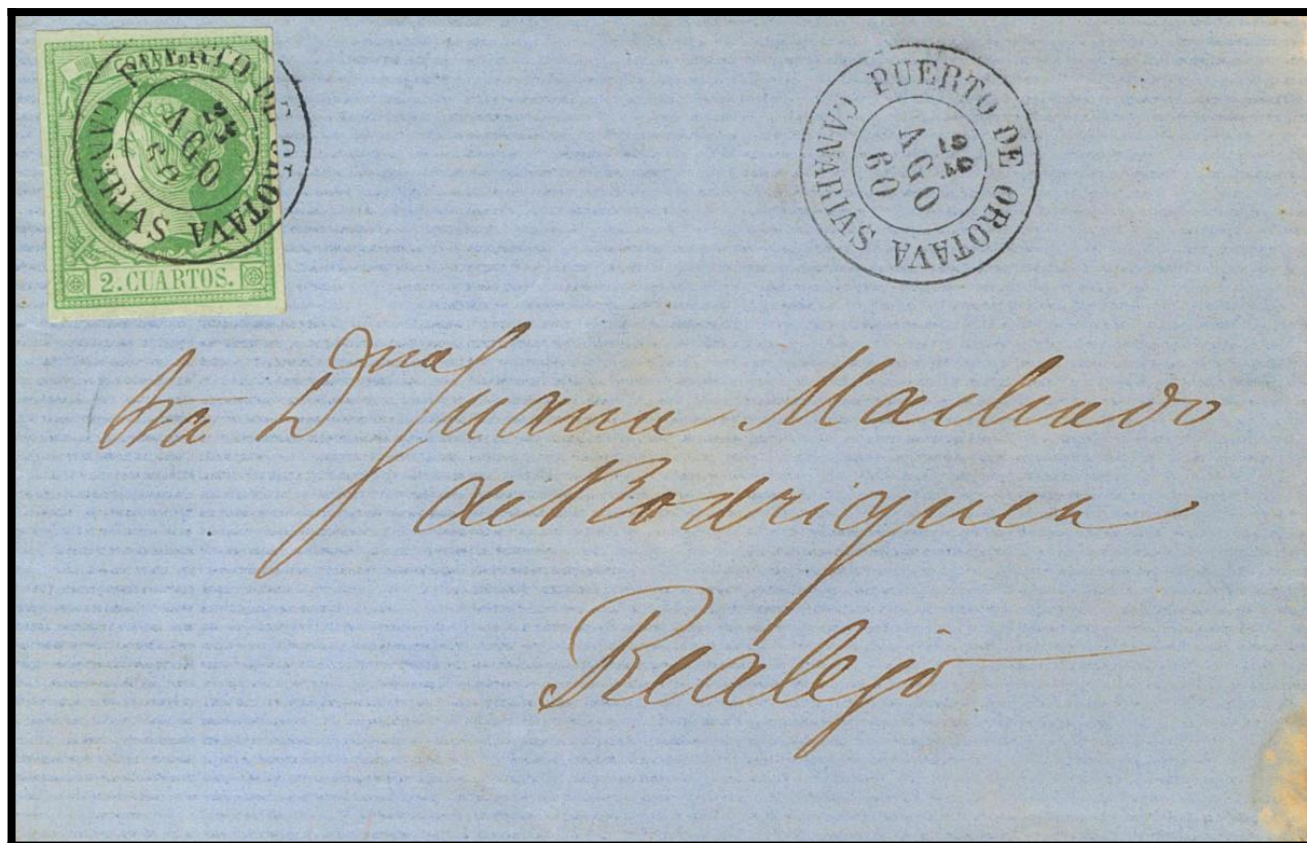 PUERTO DE OROTAVA
CANARIAS
AGO
60
2.CUARTOS.
PUERTO DE OROTAVA
CANARIAS
AGO
60
Sra Dña Juana Machado
de Rodriguez
Realejo